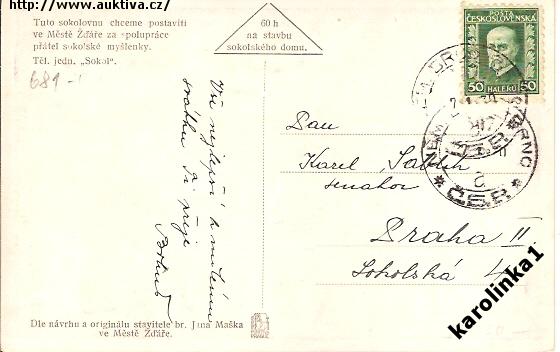 http://www.auktiva.cz/
Tuto sokolovnu chceme postaviti
ve Městě Žďáře za spolupráce
přátel sokolské myšlenky.
Těl. jedn. „Sokol".
681-1
60 h
na stavbu
sokolského domu.
POŠTA
ČESKOSLOVENSKÁ
50 HALÉŘŮ 50
ČSR
Vše nejlepší k
svátku Ti přeje
Pan
Karel
senator
Praha II
Sokolská 4
Dle návrhu a originálu stavitele br. Jana Maška
ve Městě Žďáře.
karolinka1